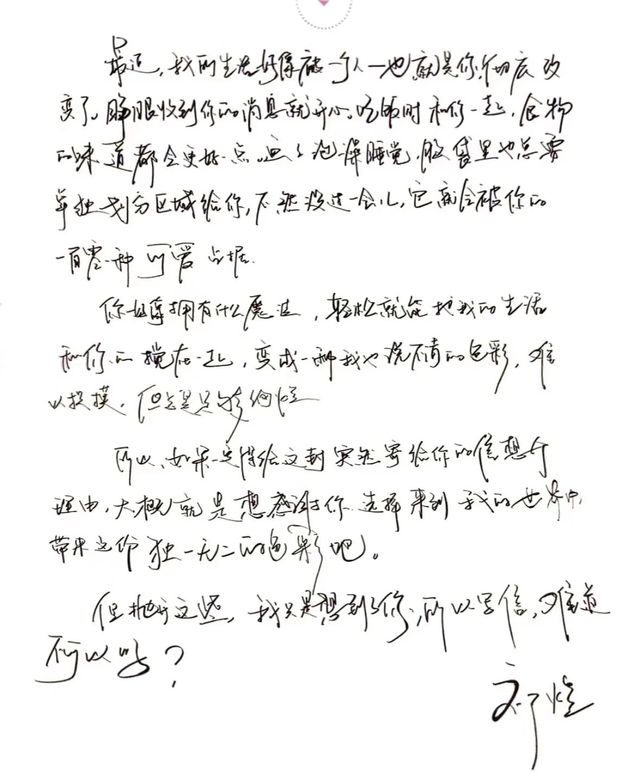 最近，我的生活好像被一个人一也就是你，彻底改
变了。睁眼收到你的消息就开心。吃饭时和你一起，食物
的味道都会更好一点。画了泡澡睡觉，脑袋里也总要
单独划分区域给你，不然没过一会儿，它就会被你的
一百零一种可爱占据.
你好像拥有什么魔法，轻松就能把我的生活
和你的搅在一起，变成一种我也说不清的色彩，难
以捉摸，但总是
所以，如果一定得给这封突然寄给你的信想个
理由，大概就是想感谢你选择来到我的世界中，
带来这份独一无二的色彩吧。
但抛开这些，我只是想到了你，所以写信，难道
不可以吗？